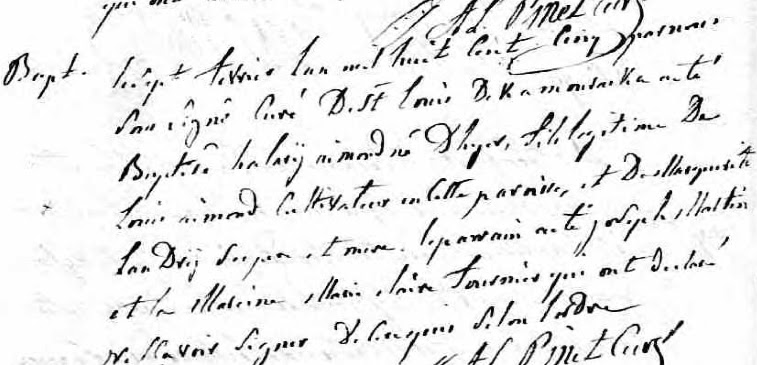 Al. Pinet Curé
Bapt. le sept fevrier lan mil huit cent cinq par nous
sous signé Curé De St Louis De Kamouraska a eté
Baptisé halary aimond né D'hyer, fils legitime De
Louis aimond Cultivateur en Cette paroisse, et De Marguerite
Landry ses pere et mere. le parrain a eté joseph Martin
et la Mareine Marie claire fournier qui ont declaré
ne Scavoir Signer De ce requis Selon lordre
Al Pinet Curé